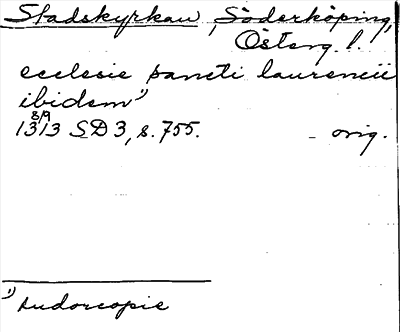 Stadskyrkan, Söderköping,
Österg. l.
ecclesie sancti laurencii
ibidem 1)
8/9
1313 SD 3, s. 755. - orig.
1) Sudorcopie